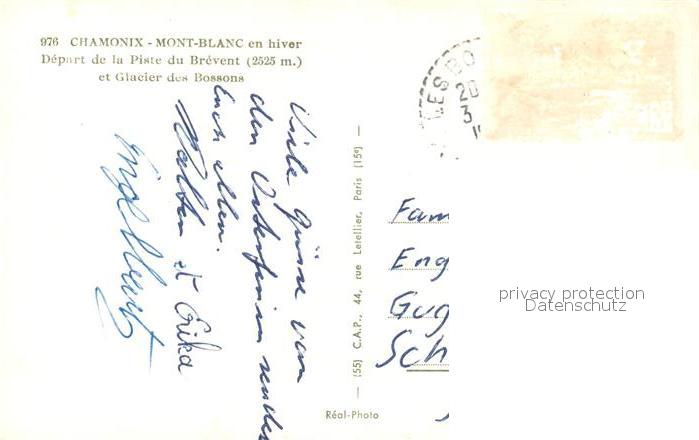 976 CHAMONIX - MONT-BLANC en hiver
Départ de la Piste du Brévent (2525 m.)
et Glacier des Bossons
Viele Grüsse von
den Osterferien senden
Euch allen
et Erika
— (55) C.A.P., 44, rue Letellier, Paris (15e) —
Réal-Photo
LES BO
20
3
Fam
Eng
Gug
Sch
privacy protection
Datenschutz